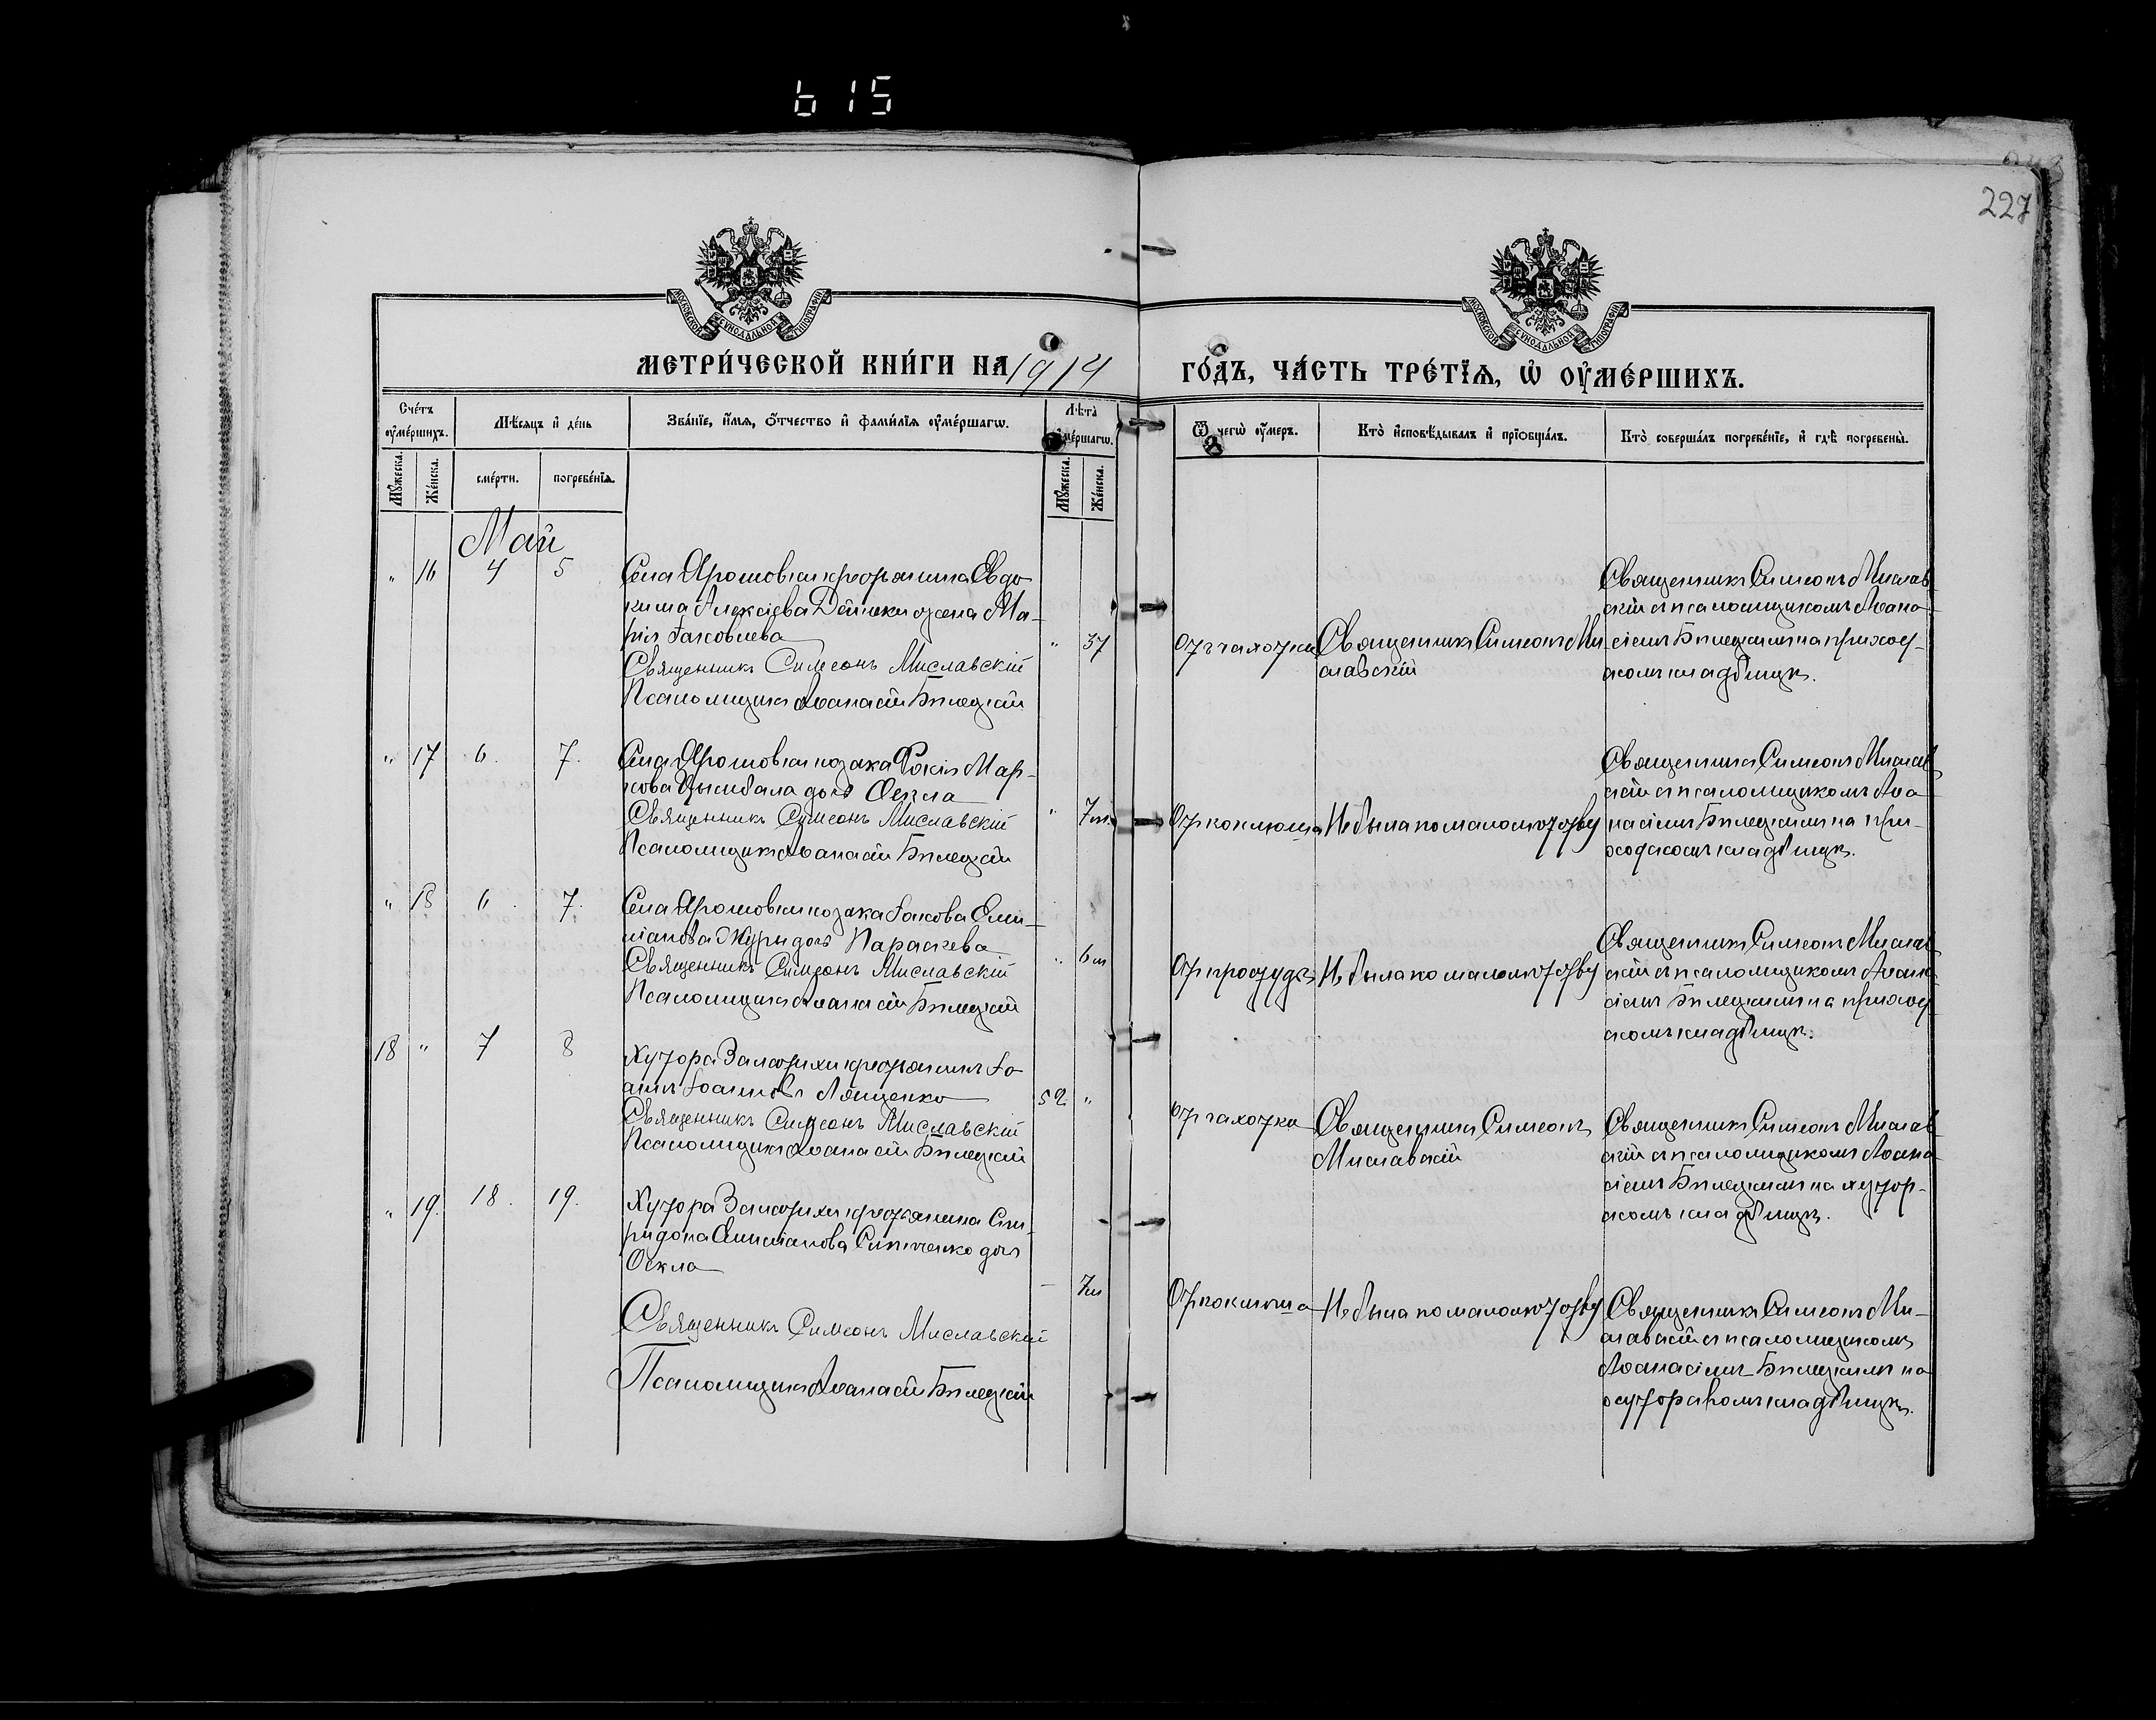 615
227
МОСКОВСКОЙ СѴНОДАЛЬНОЙ ТИПОГРАФІИ
МОСКОВСКОЙ СѴНОДАЛЬНОЙ ТИПОГРАФІИ
МЕТРИ́ЧЕСКОЙ КНИ́ГИ НА 1914 ГО́ДЪ, ЧА́СТЬ ТРЕ́ТЇѦ, Ѡ҆ ОУ҆МЕ́РШИХЪ.
Сче́тъ оу҆ме́ршихъ.
Мѣ́сяцъ и҆ де́нь
Зва́нїе, и҆́мѧ, ѻ҆́тчество и҆ фами́лїѧ оу҆ме́ршагѡ.
Лѣ́та оу҆ме́ршагѡ.
Ѿ чегѡ̀ оу҆́меръ.
Кто̀ и҆сповѣ́дывалъ и҆ прїѡбща́лъ.
Кто̀ соверша́лъ погребе́нїе, и҆ гдѣ̀ погребены̀.
Мꙋ́жеска.
Же́нска.
сме́рти.
погребе́нїѧ.
Мꙋ́жеска.
Же́нска.
Май
" 16 4 5
Села Ярошовки крестьянина Евдо-
кима Алексіева Дейнеки жена Ма-
рія Іаковлева
Священникъ Симеонъ Миславскій
Псаломщикъ Аѳанасій Бѣлецкій
" 37
Отъ чахотки
Священникъ Симеонъ Ми-
славскій
Священникъ Симеонъ Мислав-
скій съ псаломщикомъ Аѳана-
сіемъ Бѣлецкимъ на приход-
скомъ кладбищѣ.
" 17 6. 7.
Села Ярошовки козака Фокія Мар-
кова Цымбала дочь Ѳекла
Священникъ Симеонъ Миславскій
Псаломщикъ Аѳанасій Бѣлецкій
" 7 м.
Отъ коклюша
Не была по малолѣтству
Священникъ Симеонъ Мислав-
скій съ псаломщикомъ Аѳа-
насіемъ Бѣлецкимъ на при-
ходскомъ кладбищѣ.
" 18 6. 7.
Села Ярошовки козака Іакова Еми-
ліанова Журы дочь Параскева
Священникъ Симеонъ Миславскій
Псаломщикъ Аѳанасій Бѣлецкій
" 6 м
Отъ простуды
Не была по малолѣтству
Священникъ Симеонъ Мислав-
скій съ псаломщикомъ Аѳана-
сіемъ Бѣлецкимъ на приход-
скомъ кладбищѣ.
18 " 7 8
Хутора крестьянинъ Іо-
аннъ Іоанновъ Ляшенко
Священникъ Симеонъ Миславскій
Псаломщикъ Аѳанасій Бѣлецкій
52 "
Отъ чахотки
Священникъ Симеонъ
Миславскій
Священникъ Симеонъ Мислав-
скій съ псаломщикомъ Аѳана-
сіемъ Бѣлецкимъ на хутор-
скомъ кладбищѣ.
" 19. 18. 19.
Хутора крестьянина Спи-
ридона Емиліанова дочь
Ѳекла
Священникъ Симеонъ Миславскій
Псаломщикъ Аѳанасій Бѣлецкій
— 7 м
Отъ коклюша
Не была по малолѣтству
Священникъ Симеонъ Ми-
славскій съ псаломщикомъ
Аѳанасіемъ Бѣлецкимъ на
хуторскомъ кладбищѣ.